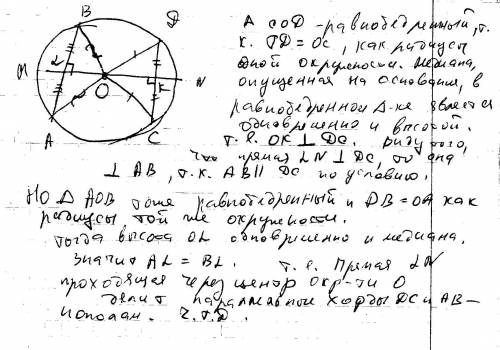 B
D
M
L
K
N
O
A
C
Δ COD - равнобедренный, т.
к. OD = OC, как радиусы
одной окружности. Медиана,
опущенная на основания, в
равнобедренном Δ-ке является
одновременно и высотой.
т.е. OK ⊥ DC. Ввиду того,
что прямая LN ⊥ DC, то она
⊥ AB, т.к. AB || DC по условию.
Но Δ AOB тоже равнобедренный и OB = OA как
радиусы той же окружности.
тогда высота OL одновременно и медиана.
значит AL = BL. т.е. Прямая LN
проходящая через центр окр-ти O
делит параллельные хорды DC и AB -
пополам. Ч.Т.Д.